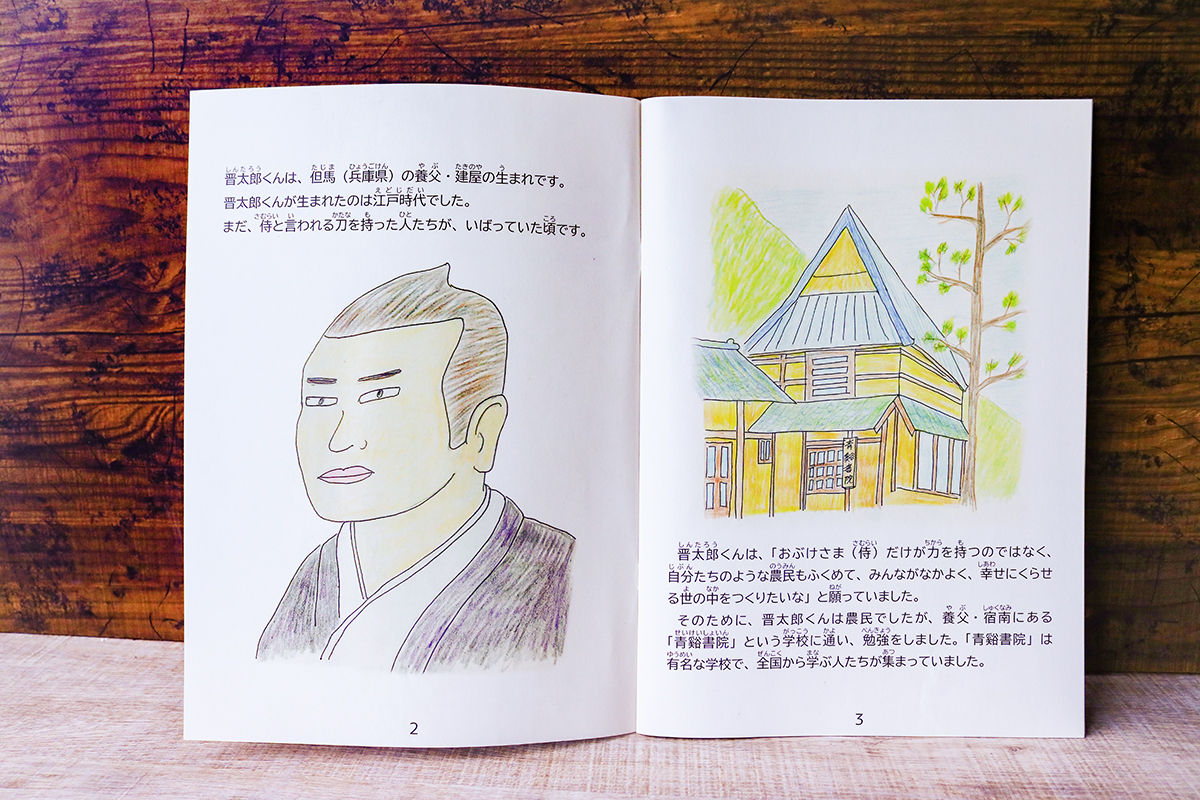 晋太郎くんは、但馬（兵庫県）の養父・建屋の生まれです。
晋太郎くんが生まれたのは江戸時代でした。
まだ、侍と言われる刀を持った人たちが、いばっていた頃です。
2
青谿書院
晋太郎くんは、「おぶけさま（侍）だけが力を持つのではなく、
自分たちのような農民もふくめて、みんながなかよく、幸せにくらせ
る世の中をつくりたいな」と願っていました。
そのために、晋太郎くんは農民でしたが、養父・宿南にある
「青谿書院」という学校に通い、勉強をしました。「青谿書院」は
有名な学校で、全国から学ぶ人たちが集まっていました。
3